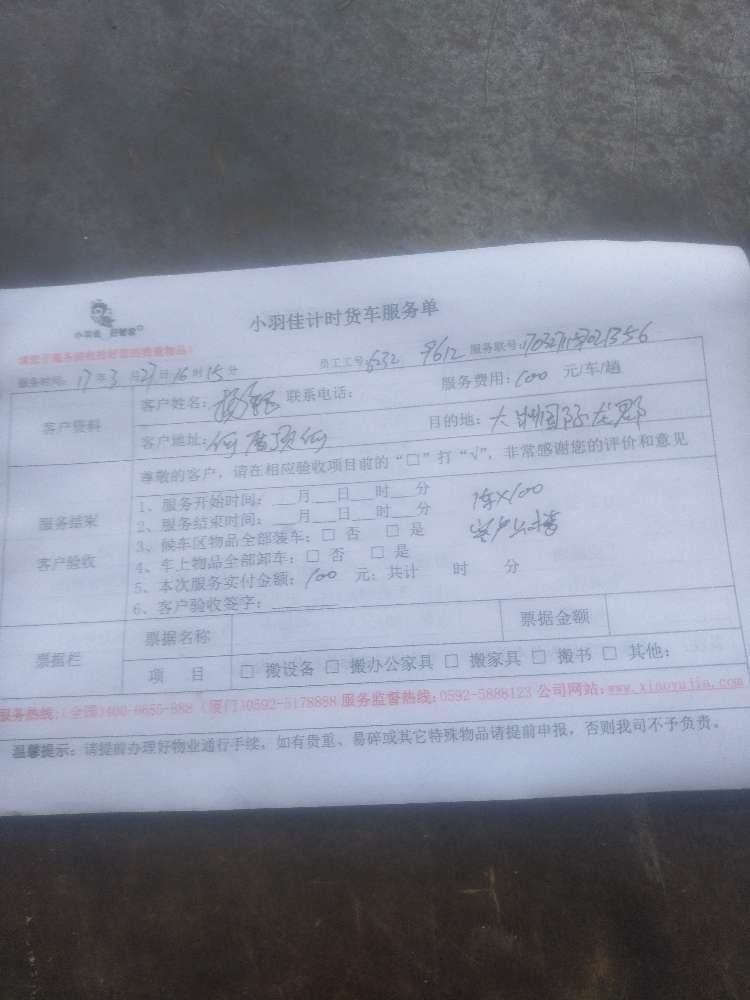 小羽佳 好管家
小羽佳计时货车服务单
请您于服务前收拾好您的贵重物品!
员工工号: 6232 9612 服务联号:
服务时间: 17年3月27日16时15分
客户资料
客户姓名: 联系电话: 服务费用: 100 元/车/趟
客户地址: 何厝顶何 目的地: 大洲国际龙郡
服务结束
客户验收
尊敬的客户,请在相应验收项目前的“□”打“√”,非常感谢您的评价和意见
1、服务开始时间: 月 日 时 分
2、服务结束时间: 月 日 时 分
3、候车区物品全部装车:□ 否 □ 是
4、车上物品全部卸车:□ 否 □ 是
5、本次服务实付金额: 100 元;共计 时 分
6、客户验收签字:
票据栏
票据名称 票据金额
项 目 □ 搬设备 □ 搬办公家具 □ 搬家具 □ 搬书 □ 其他:
服务热线:(全国)400-6655-988 (厦门)0592-5178888 服务监督热线:0592-5888123 公司网站:www.xiaoyujia.com
温馨提示:请提前办理好物业通行手续,如有贵重、易碎或其它特殊物品请提前申报,否则我司不予负责。